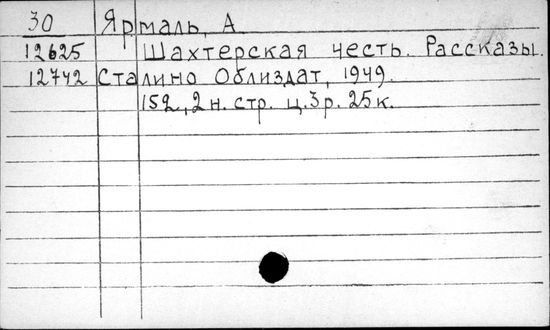 30 Ярмаль, А
12625 Шахтерская честь. Рассказы.
12742 Сталино Облиздат, 1949.
152, 2 н. стр. ц. 3 р. 25 к.